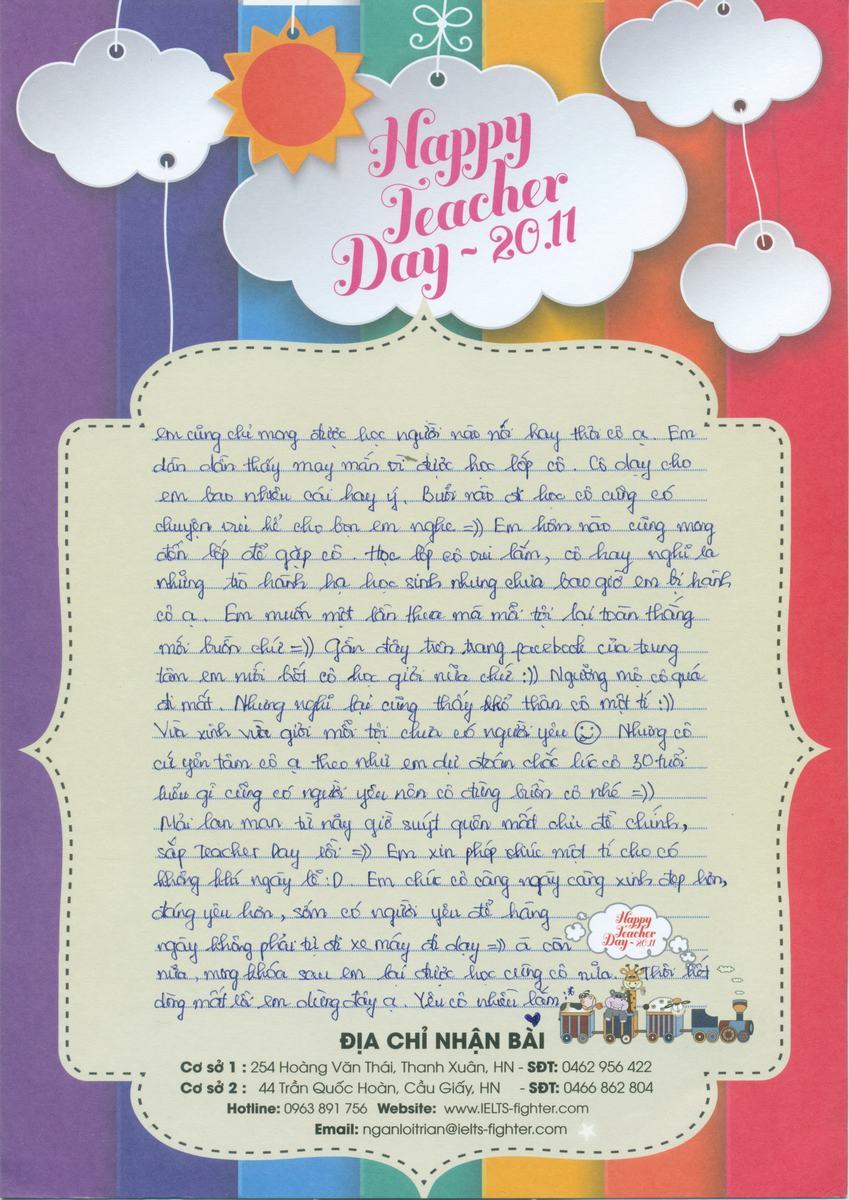 Happy
Teacher
Day ~ 20.11
em cũng chỉ mong được học người nào nói hay thôi cô ạ. Em
dần dần thấy may mắn vì được học lớp cô. Cô dạy cho
em bao nhiêu cái hay ý. Buổi nào đi học cô cũng có
chuyện vui kể cho bọn em nghe =)) Em hôm nào cũng mong
đến lớp để gặp cô. Học lớp cô vui lắm, cô hay nghĩ ra
những trò hành hạ học sinh nhưng chưa bao giờ em bị hành
cô ạ. Em muốn một lần thua mà mỗi tội lại toàn thắng
mới buồn chứ =)) Gần đây trên trang facebook của trung
tâm em mới biết cô học giỏi nữa chứ :)) Ngưỡng mộ cô quá
đi mất. Nhưng nghĩ lại cũng thấy khổ thân cô một tí :))
Vừa xinh vừa giỏi mỗi tội chưa có người yêu Nhưng cô
cứ yên tâm cô ạ theo như em dự đoán chắc lúc cô 30 tuổi
kiểu gì cũng có người yêu nên cô đừng buồn cô nhé =))
Mải lan man từ nãy giờ suýt quên mất chủ đề chính,
sắp Teacher Day rồi =)) Em xin phép chúc một tí cho có
không khí ngày lễ :D Em chúc cô càng ngày càng xinh đẹp hơn,
đáng yêu hơn, sớm có người yêu để hàng
ngày không phải tự đi xe máy đi dạy =)) à còn
nữa, mong khóa sau em lại được học cùng cô nữa. Thôi hết
dòng mất rồi em dừng đây ạ. Yêu cô nhiều lắm :*
Happy
Teacher
Day ~ 20.11
ĐỊA CHỈ NHẬN BÀI
Cơ sở 1 : 254 Hoàng Văn Thái, Thanh Xuân, HN - SĐT: 0462 956 422
Cơ sở 2 : 44 Trần Quốc Hoàn, Cầu Giấy, HN - SĐT: 0466 862 804
Hotline: 0963 891 756 Website: www.IELTS-fighter.com
Email: nganloitrian@ielts-fighter.com